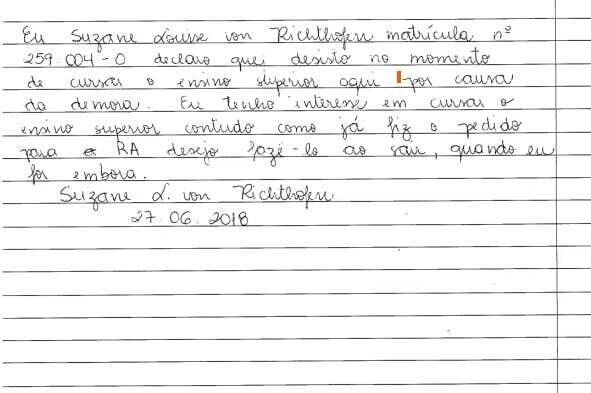 Eu Suzane Louise von Richthofen matrícula nº
259.004-0 declaro que desisto no momento
de cursar o ensino superior aqui por causa
da demora. Eu tenho interesse em cursar o
ensino superior contudo como já fiz o pedido
para RA desejo fazê-lo ao sair, quando eu
for embora.
Suzane L. von Richthofen
27.06.2018